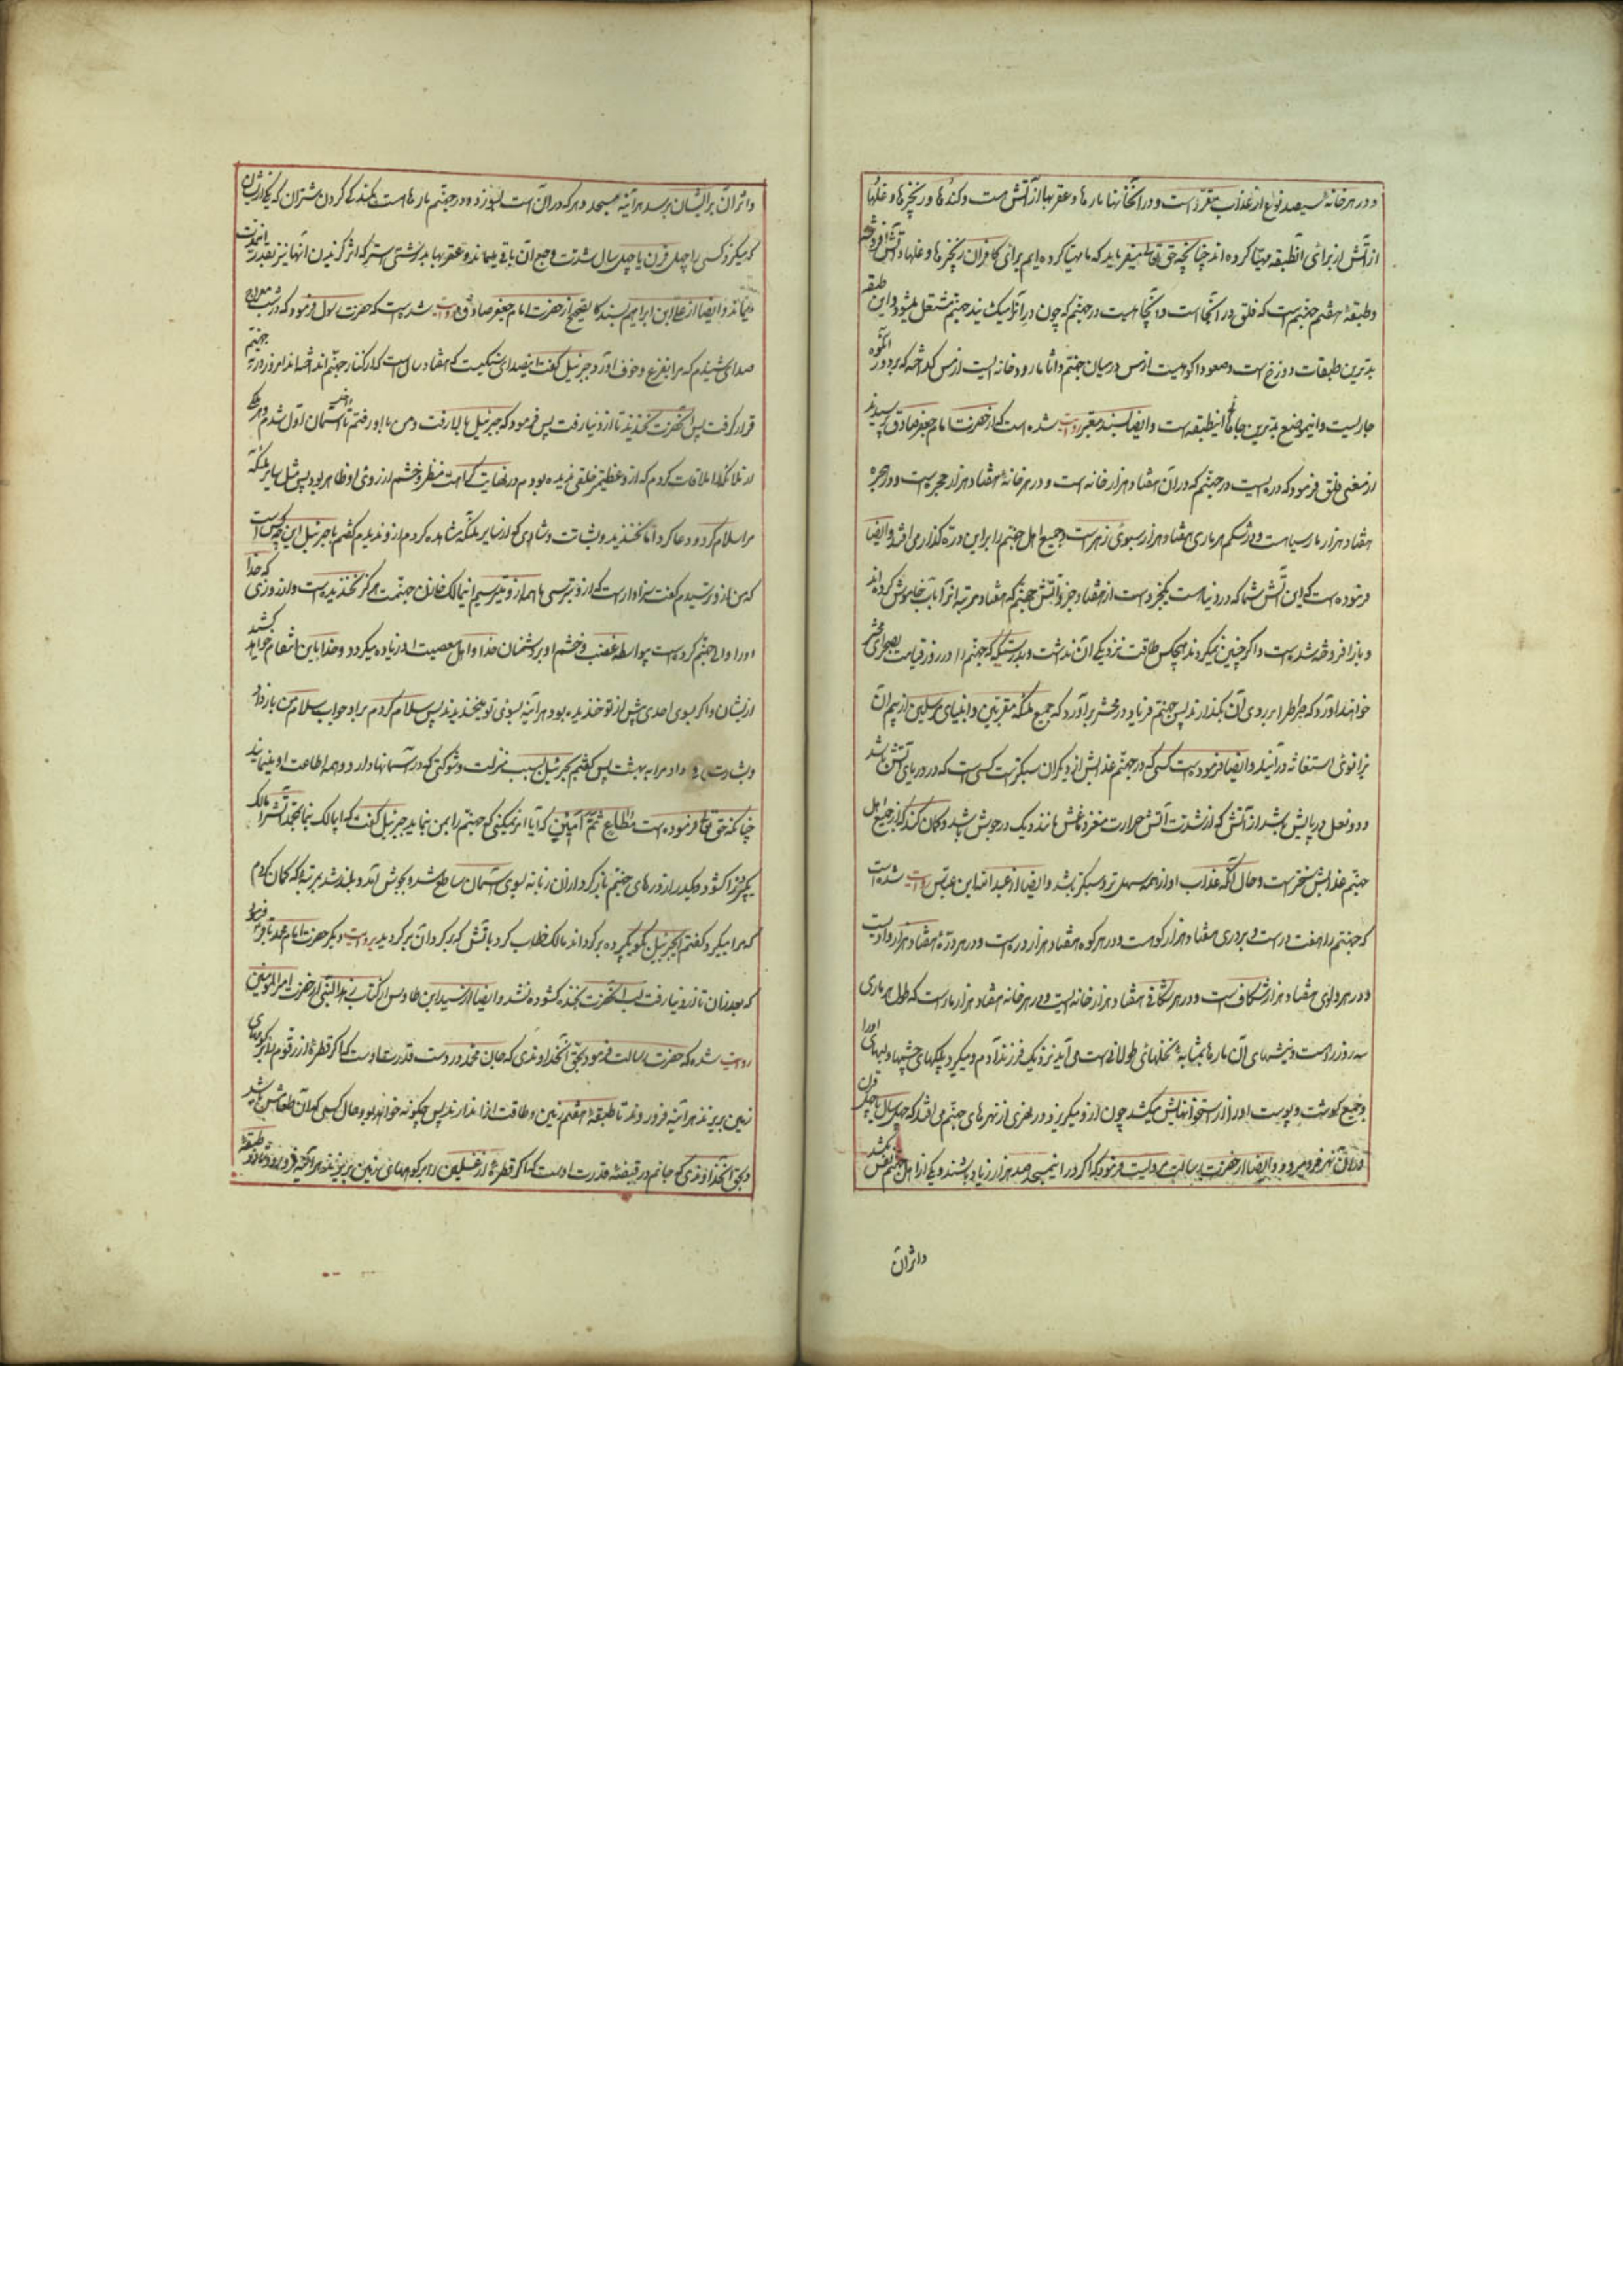 و در هر خانه سیصد نوع از عذاب مقرر است و در آنخانها مارها و عقربها از آتش است و کندها و زنجیرها و غلها
از آتش از برای آنطبقه مهیا کرده اند چنانچه حق تعالی میفرماید که ما مهیا کرده ایم برای کافران زنجیرها و غلها و آتش افروخته
و طبقهٔ هفتم جهنم است که فلق در آنجا است و آنچاهیست در جهنم که چون در آنرا میکشایند جهنم مشتعل میشود و این طبقه
بدترین طبقات دوزخ است و صعودا کوهیست از مس در میان جهنم و اثاما رودخانه ایست از مس کداخته که بر دور آنکوه
جاریست و اینموضع بدترین جاهای اینطبقه است و ایضا بسند معتبر روایت شده است که از حضرت امام جعفر صادق پرسیدند
از معنی فلق فرمود که دره ایست در جهنم که در آن هفتاد هزار خانه است و در هر خانهٔ هفتاد هزار حجره است و در هر حجره
هفتاد هزار مار سیاهست و در شکم هر ماری هفتاد هزار سبوی زهر است و جمیع اهل جهنم را بر این دره کذار می افتد و ایضا
فرموده است که این آتش شما که در دنیاست یکجزو است از هفتاد جزو آتش جهنم که هفتاد مرتبه آنرا بآب خاموش کرده اند
و باز افروخته شده است و اکر چنین نمیکردند هیچکس طاقت نزدیکی آن نداشت و بدرستیکه جهنم را در روز قیامت بصحرای محشر
خواهند آورد که صراط را بر روی آن بکذارند پس جهنم فریاد در محشر برآورد که جمیع ملئکه مقربین و انبیای مرسلین از بیم آن
بزانوی استغاثه در آیند و ایضا فرموده است کسی که در جهنم عذابش از دیکران سبکتر است کسی است که در دریای آتش باشد
و دو نعل در پایش باشد از آتش که از شدت آتش حرارت مغز دماغش مانند دیک در جوش باشد و کمان کند که از جمیع اهل
جهنم عذابش سختر است و حال آنکه عذاب او از همه سهل تر و سبکتر باشد و ایضا از عبدالله ابن عباس روایت شده است
که جهنم را هفت در است و بر دری هفتاد هزار کوهست و در هر کوه هفتاد هزار دره است و در هر درهٔ هفتاد هزار وادیست
و در هر وادی هفتاد هزار شکاف است و در هر شکافی هفتاد هزار خانه ایست و در هر خانه هفتاد هزار مار است که طول هر ماری
سه روزه راهست و نیشهای آن مارها بمثابهٔ نخلهای طولانی است می آید نزدیک فرزند آدم و میکیرد پلکهای چشمها و لبهای او را
و جمیع کوشت و پوست او را از استخوانهایش میکشد چون از او میکریزد در نهری از نهرهای جهنم می افتد که چهل سال یا چهل قرن
در آن نهر فرو میرود و ایضا از حضرت رسالت روایت فرمود که اکر در اینمسجد صد هزار زیاد باشند و یکی از اهل جهنم نفس بکشد
و اثر آن
و اثر آن بر ایشان برسد هرآینه مسجد و هر که در آن است بسوزد و در جهنم مارها است بکندکی کردن شتران که یکی از ایشان
که میکزد کسی را چهل قرن یا چهل سال شدت وجع آن باقی میماند و عقربها بدرشتی استر که اثر کزیدن آنها نیز بقدر اینمدت
میماند و ایضا از علی ابن ابراهیم بسند کالصحیح از حضرت امام جعفر صادق روایت شده است که حضرت رسول فرمود که در شب معراج
صدای شنیدم که مرا بفزع و خوف آورد جبرئیل کفت اینصدای سنکیست که هفتاد سال است که از کنار جهنم انداخته اند امروز در ته جهنم
قرار کرفت پس آنحضرت نخندید تا از دنیا رفت پس فرمود که جبرئیل بالا رفت و من با او رفتم تا بآسمان اول داخل شدم و هر یکی
از ملائکه را ملاقات کردم که از او عظیمتر خلقی ندیده بودم در نهایت کراهت منظر و خشم از روی او ظاهر بود پس مثل سایر ملئکه
مرا سلام کرد و دعا کرد اما نخندید و بشاشت و شادی که از سایر ملئکه مشاهده کردم از او ندیدم کفتم یا جبرئیل این چه کس است
که من از او ترسیدم کفت سزاوار است که از او بترسی ما همه از او میترسیم اینمالک خازن جهنمست هرکز نخندیده است و از روزی که خدا
او را والی جهنم کرده است پیوسطه غضب و خشم او بر دشمنان خدا و اهل معصیت او زیاده میکردد و خدا باین انتقام خواهد کشید
از ایشان و اکر بسوی احدی پیش از تو خندیده بود هرآینه بسوی تو میخندید پس سلام کردم بر او جواب سلام من باز داد
و بشارت داد مرا به بهشت پس کفتم بجبرئیل بسبب منزلت و شوکتی که در آسمانها دارد و همه اطاعت او مینمایند
چنانکه حق تعالی فرموده است مُطَاعٍ ثَمَّ اَمِینٍ که آیا امر نمیکنی که جهنم را بمن بنماید جبرئیل کفت که ایمالک بنما بمحمد آتش را مالک
یکپرده را کشود و یکدر از درهای جهنم باز کرد از آن زبانه بسوی آسمان ساطع شد و بجوش آمد و بلند شد بمرتبهٔ که کمان کردم
که مرا میکیرد کفتم ایجبرئیل بکو که پرده برکرداند مالک خطاب کرد بآتش که برکرد آن برکردید بروایت دیکر حضرت امام محمد باقر فرمود
که بعد از آن تا از دنیا رفت لب آنحضرت بخنده کشوده نشد و ایضا از سید ابن طاوس از کتاب زهد النبی از حضرت امیرالمؤمنین
روایت شده که حضرت رسالت فرمود بحق آنخداوندی که جان محمد در دست قدرت اوست که اکر قطرهٔ از زقوم را بر کوههای
زمین بریزند هرآینه فرو روند تا طبقهٔ هفتم زمین و طاقت آنرا ندارند پس چکونه خواهد بود حال کسی که آن طعامش باشد
و بحق آنخداوندی که جانم در قبضهٔ قدرت اوست که اکر قطرهٔ از غسلین را بر کوههای زمین بریزند هرآینه فرو رود تا طبقهٔ